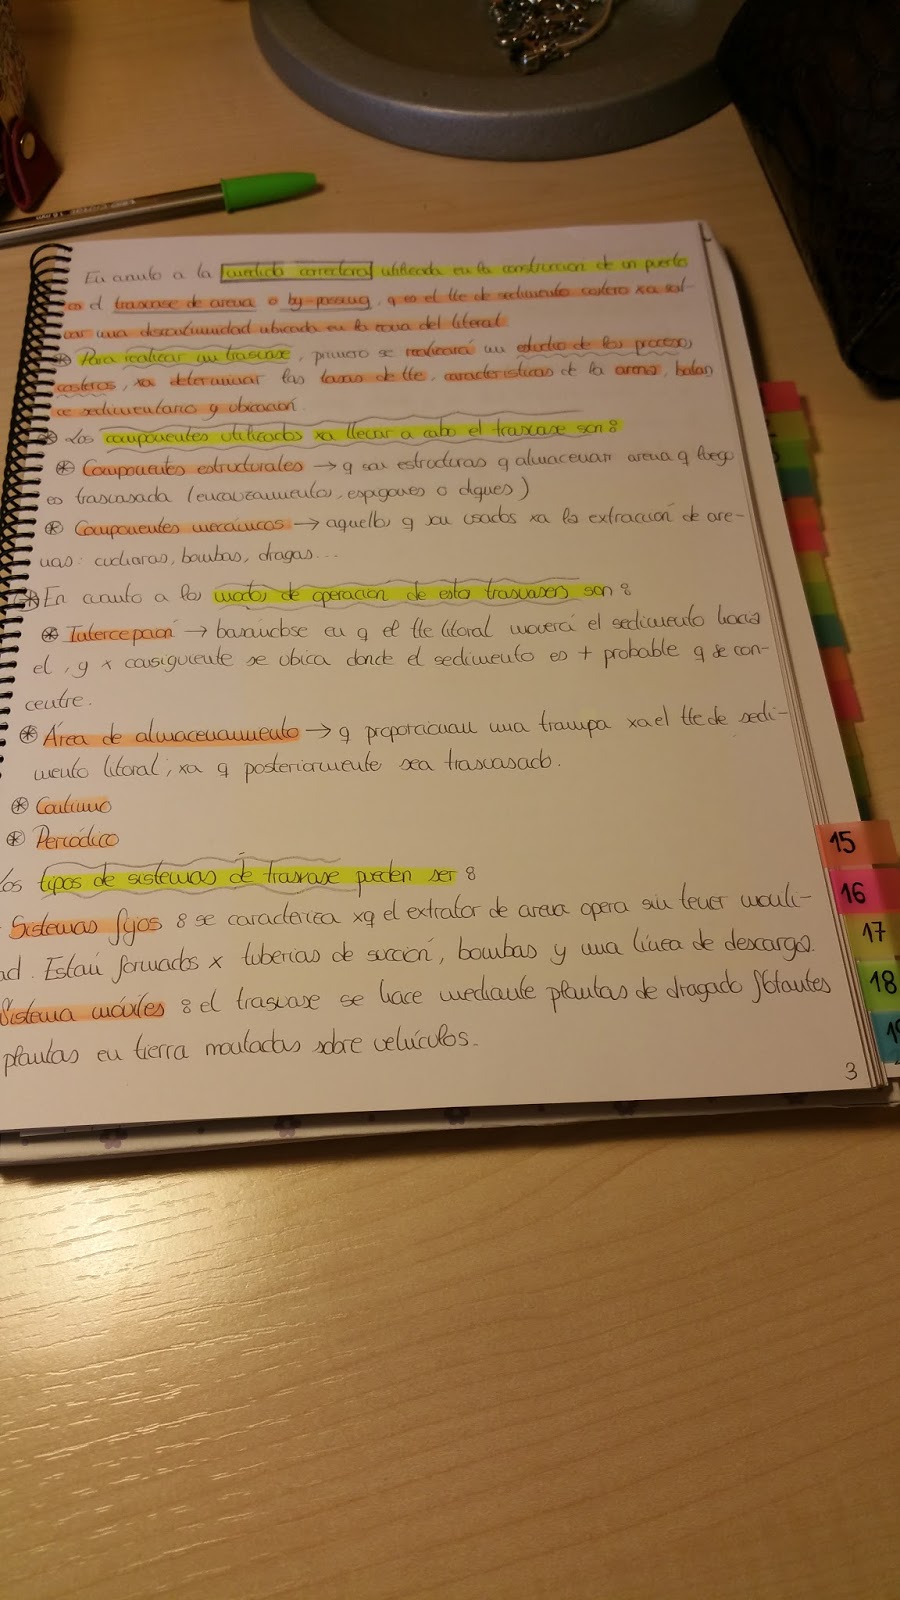 En cuanto a la medida correctora utilizada en la construcción de un puerto
es el trasvase de arena o by-passing, q es el tte de sedimento costero xa sal-
var una discontinuidad ubicada en la zona del litoral
⊛ Para realizar un trasvase, primero se realizará un estudio de los procesos
costeros, xa determinar las tasas de tte, características de la arena, balan
ce sedimentario y ubicación.
⊛ Los componentes utilizados xa llevar a cabo el trasvase son:
⊛ Componentes estructurales → q son estructuras q almacenan arena q luego
es trasvasada (encauzamientos, espigones o diques)
⊛ Componentes mecánicos → aquellos q son usados xa la extracción de are-
nas: cucharas, bombas, dragas...
⊛ En cuanto a los modos de operación de estos trasvases son:
⊛ Intercepción → basándose en q el tte litoral moverá el sedimento hacia
el, y x consiguiente se ubica donde el sedimento es + probable q se con-
centre.
⊛ Área de almacenamiento → q proporcionan una trampa xa el tte de sedi-
mento litoral, xa q posteriormente sea trasvasado.
⊛ Continuo
⊛ Periódico
Los tipos de sistemas de trasvase pueden ser:
Sistemas fijos: se caracteriza xq el extrator de arena opera sin tener movili-
ad. Están formados x tuberías de succión, bombas y una línea de descarga.
Sistema móviles: el trasvase se hace mediante plantas de dragado flotantes
plantas en tierra montadas sobre vehículos.
3
15
16
17
18